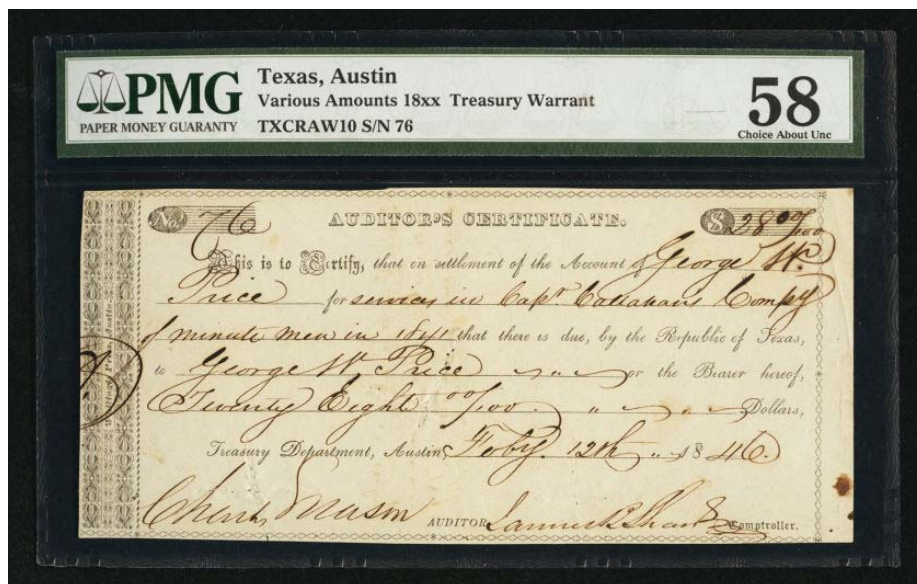 PMG
PAPER MONEY GUARANTY
Texas, Austin
Various Amounts 18xx Treasury Warrant
TXCRAW10 S/N 76
58
Choice About Unc
No 76 AUDITOR'S CERTIFICATE. $ 28 00/100
This is to Certify, that on settlement of the Account of George W.
Price for services in Capt Callahans Compy
of minute men in 1841 that there is due, by the Republic of Texas,
to George W. Price or the Bearer hereof,
Twenty Eight 00/100 Dollars,
Treasury Department, Austin, Feby. 12th 1846.
Charles Mason AUDITOR James B Shaw Comptroller.